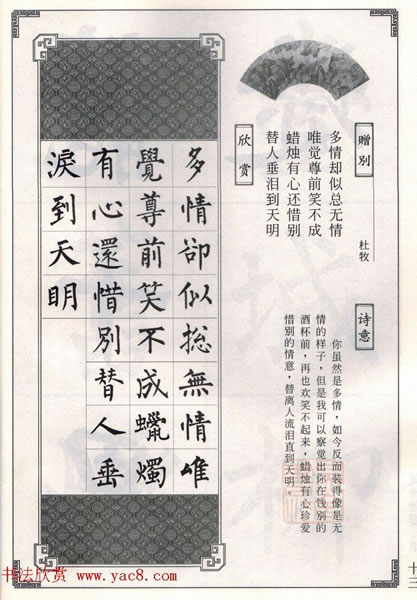 赠别
杜牧
多情却似总无情
唯觉尊前笑不成
蜡烛有心还惜别
替人垂泪到天明
诗意
你虽然是多情，如今反而装得像是无
情的样子，但是我可以察觉出你在饯别的
酒杯前，再也欢笑不起来，蜡烛有心珍爱
惜别的情意，替离人流泪直到天明。
欣赏
多情卻似總無情唯
覺尊前笑不成蠟燭
有心還惜別替人垂
淚到天明
十三
书法欣赏 www.yac8.com